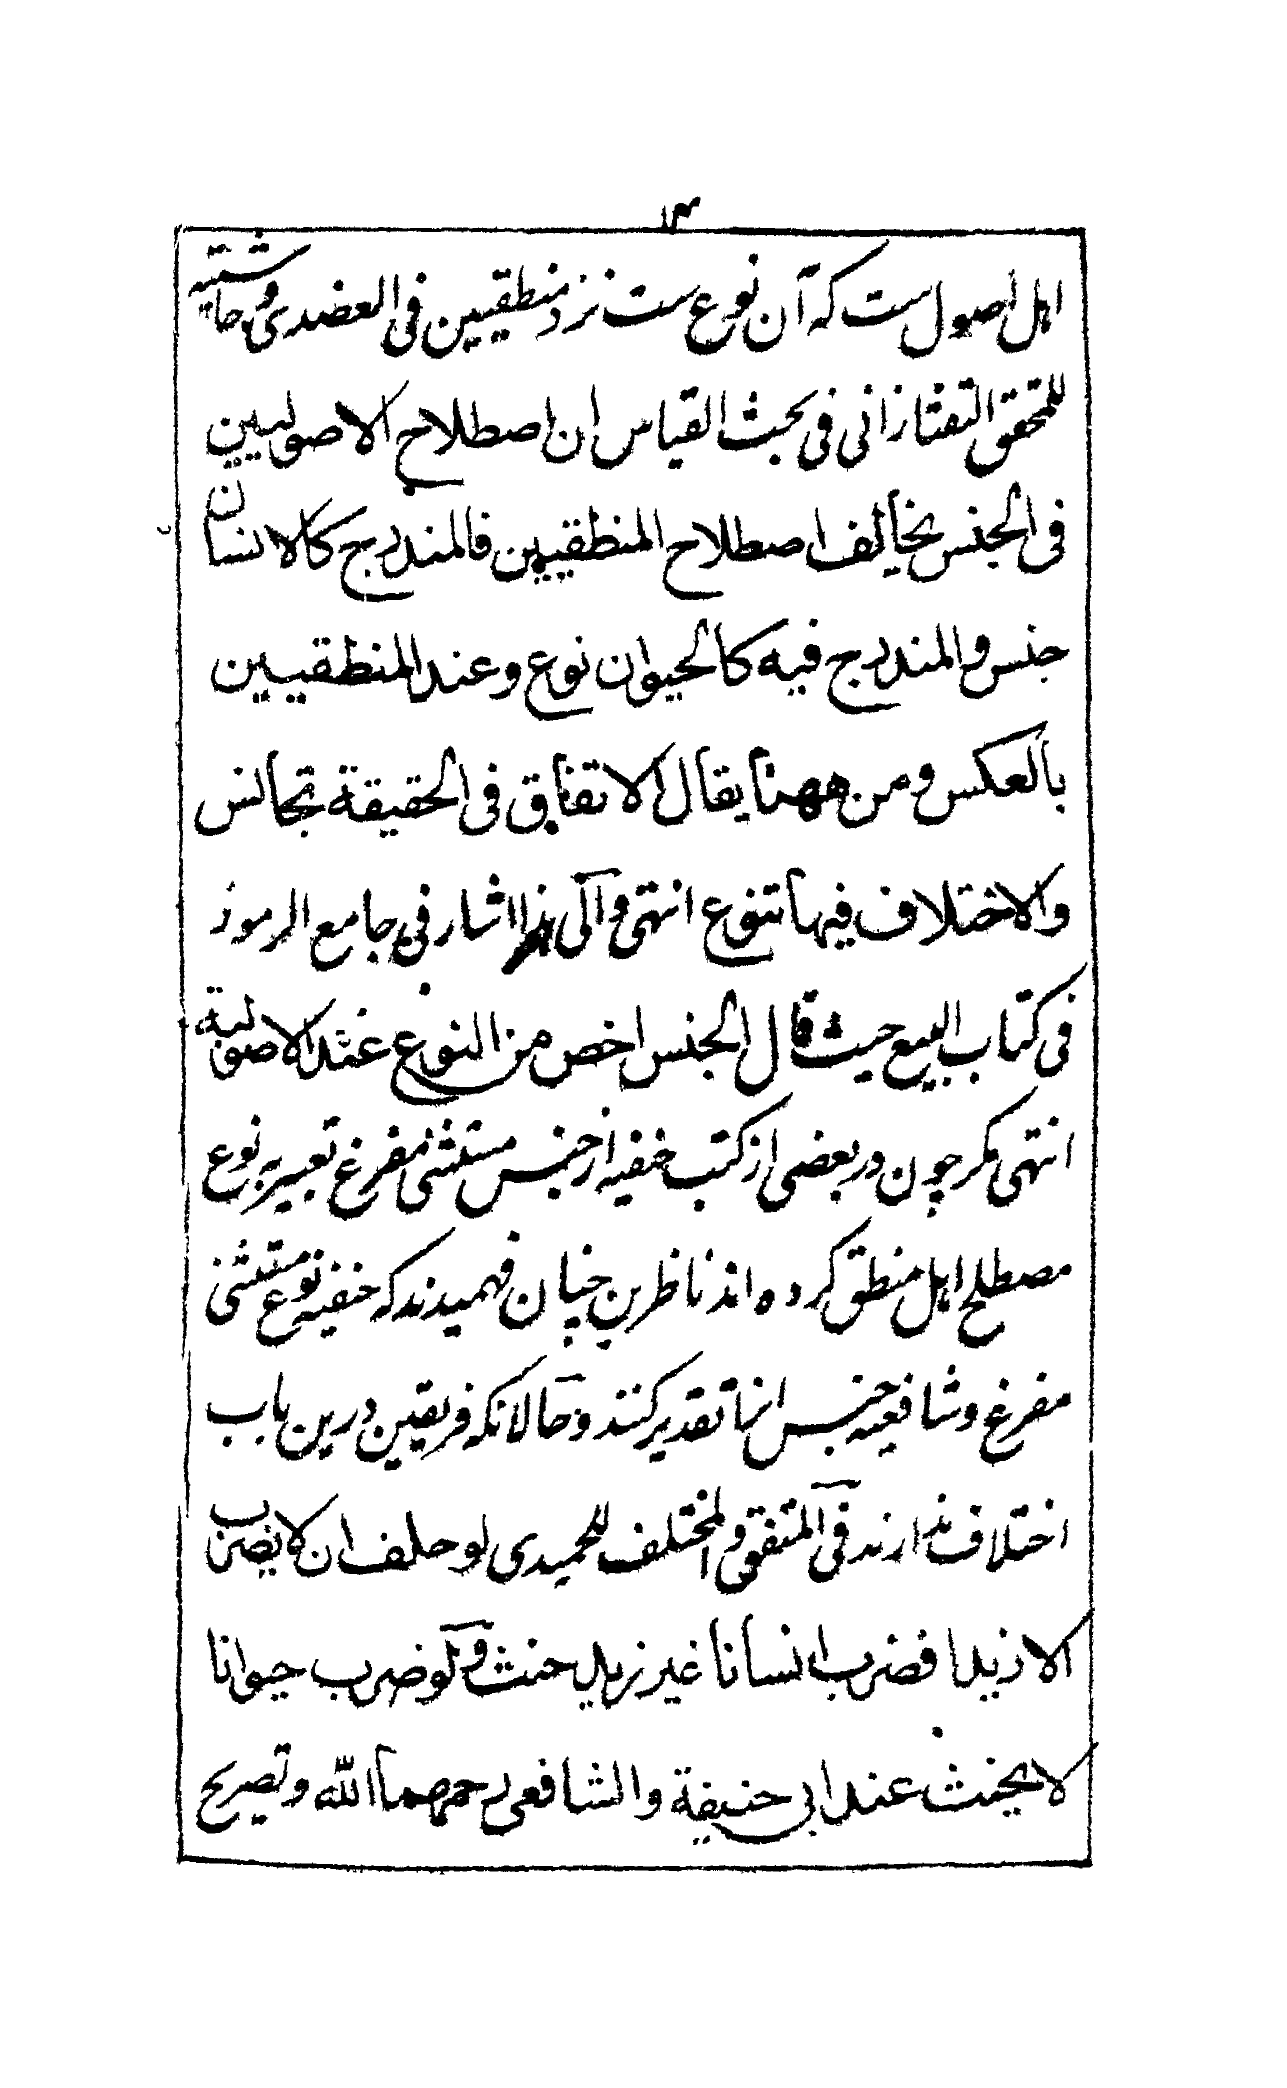 ۱۳
اہل اصول ست کہ آن نوع ست نزد منطقیین فی العضدی وحاشیتہ
للمحقق التفتازانی فی بحث القیاس ان اصطلاح الاصولیین
فی الجنس یخالف اصطلاح المنطقیین فالمندرج کالانسان
جنس والمندرج فیہ کالحیوان نوع وعند المنطقیین
بالعکس ومن ههنا یقال الاتفاق فی الحقیقة تجانس
والاختلاف فیہا تنوع انتہی والی ہذا اشار فی جامع الرموز
فی کتاب البیع حیث قال الجنس اخص من النوع عند الاصولیة
انتہی مگر چون در بعضی از کتب حنفیہ از جنس مستثنی مفرغ تعبیر بنوع
مصطلح اہل منطق کردہ اند ناظرین چنان فہمیدند کہ حنفیہ نوع مستثنی
مفرغ وشافعیہ جنس انرا تقدیر کنند وحالانکہ فریقین درین باب
اختلاف ندارند فی المتفق والمختلف للحمیدی لو حلف ان لا یضرب
الا زیدا فضرب انسانا غیر زید حنث ولو ضرب حیوانا
لا یحنث عند ابی حنیفة والشافعی رحمهما الله وتصریح